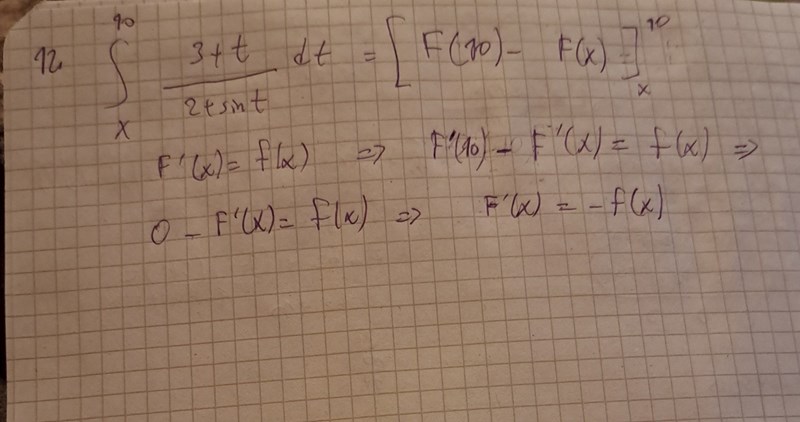 12 ∫ₓ¹⁰ (3+t)/(2+sint) dt = [F(10) - F(x)]ₓ¹⁰
F'(x) = f(x) => F'(10) - F'(x) = f(x) =>
0 - F'(x) = f(x) => F'(x) = -f(x)